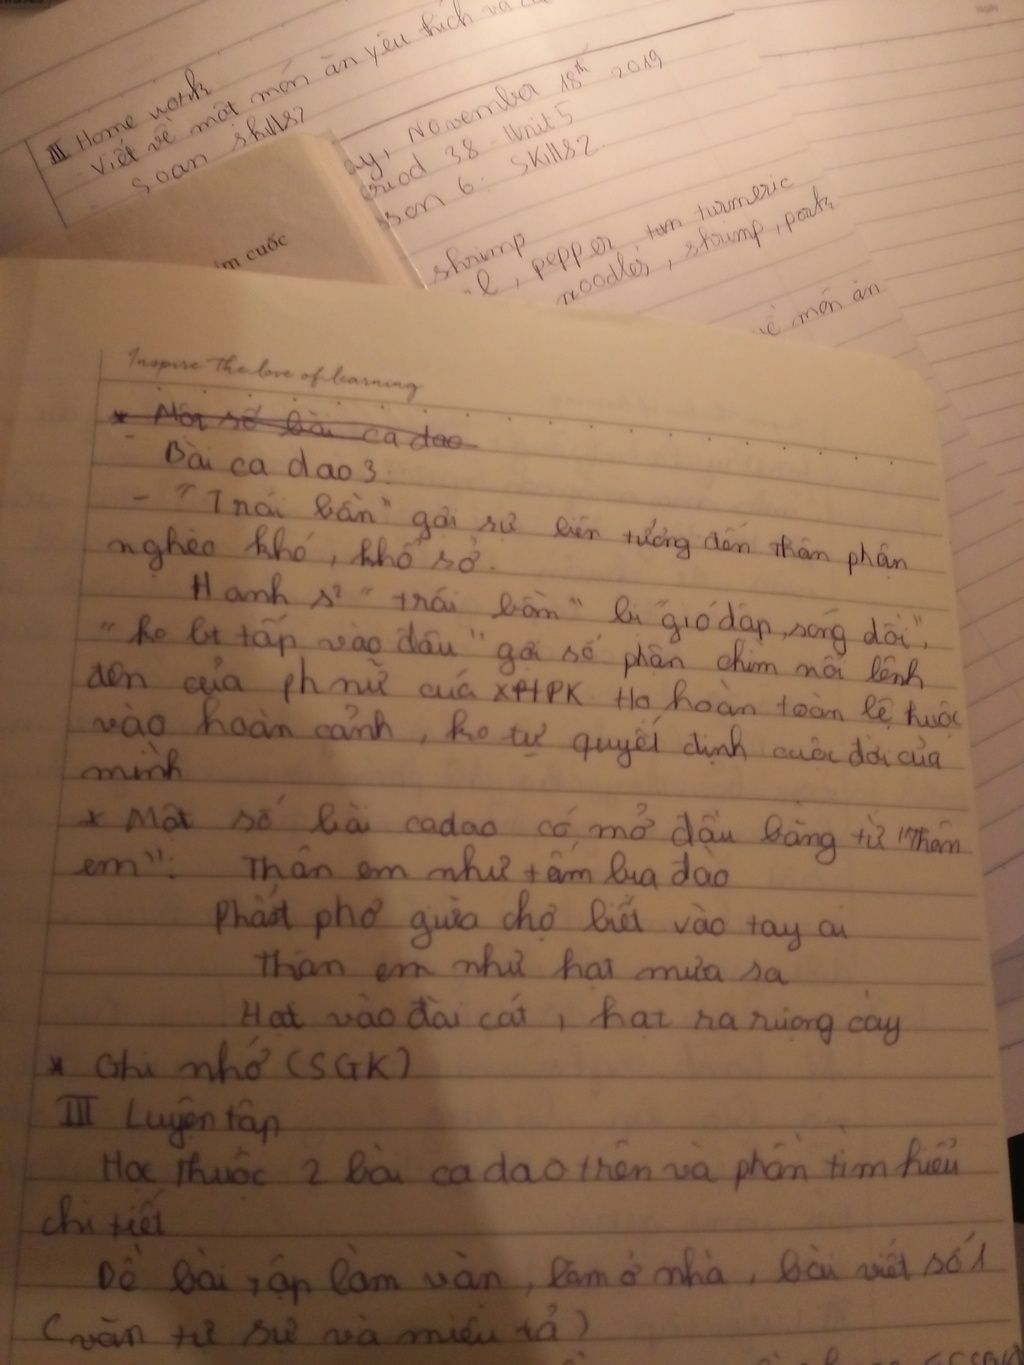 III Home work
Viết về một món ăn yêu thích và
Soạn skills2
November 18th 2019
38 - Unit 5
6: Skills 2
shrimp
pepper, turmeric
noodles, shrimp, pork
món ăn
m cuốc
Inspire the love of learning
* Một số bài ca dao
Bài ca dao 3:
- "Trái bần" gợi sự liên tưởng đến thân phận
nghèo khó, khổ sở.
H anh s² "trái bần" bị "gió dập, sóng dồi",
"ko bt tấp vào đâu" gợi số phận chìm nổi lênh
đên của ph nữ cuả XHPK Họ hoàn toàn lệ thuộc
vào hoàn cảnh, ko tự quyết định cuộc đời của
mình
* Một số bài ca dao có mở đầu bằng từ "Thân
em": Thân em như tấm lụa đào
Phất phơ giữa chợ biết vào tay ai
Thân em như hạt mưa sa
Hạt vào đài cát, hạt ra ruộng cày
* Ghi nhớ (SGK)
III Luyện tập
Học thuộc 2 bài ca dao trên và phần tìm hiểu
chi tiết
Đề bài tập làm văn, làm ở nhà, bài viết số 1
(văn tự sự và miêu tả)